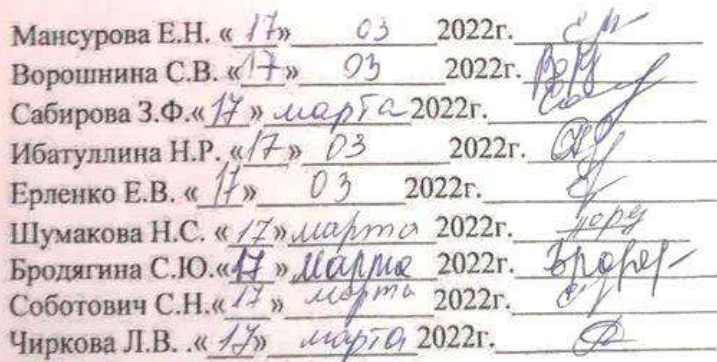 Мансурова Е.Н. «17» 03 2022г.
Ворошнина С.В. «17» 03 2022г.
Сабирова З.Ф.«17» марта 2022г.
Ибатуллина Н.Р. «17» 03 2022г.
Ерленко Е.В. «17» 03 2022г.
Шумакова Н.С. «17» марта 2022г.
Бродягина С.Ю.«17» марта 2022г.
Соботович С.Н.«17» марта 2022г.
Чиркова Л.В. .«17» марта 2022г.